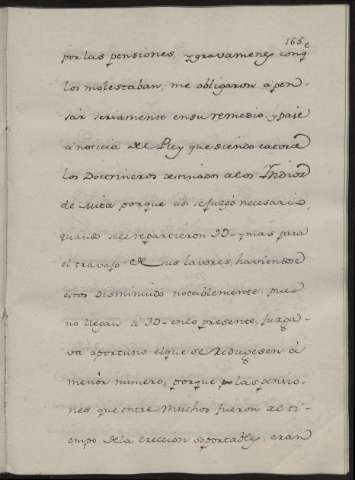 165
por las pensiones, y gravamenes conq
los molestaban, me obligaron a pen-
sar seriamente en su remedio, y pase
a noticia del Rey que siendo catorce
los Doctrineros destinados a los Indios
de Mita porque asi se juzgó necesario,
quando se le repartieron 3D- y mas para
el travajo de sus lavores, haviendose
estos disminuido notablemente, pues
no llegan á 3D- en lo presente, juzga-
va oportuno el que se redugesen á
menór numero, porque las pensio-
nes que entre muchos fueron al ti-
empo de la ereccion soportables, eran